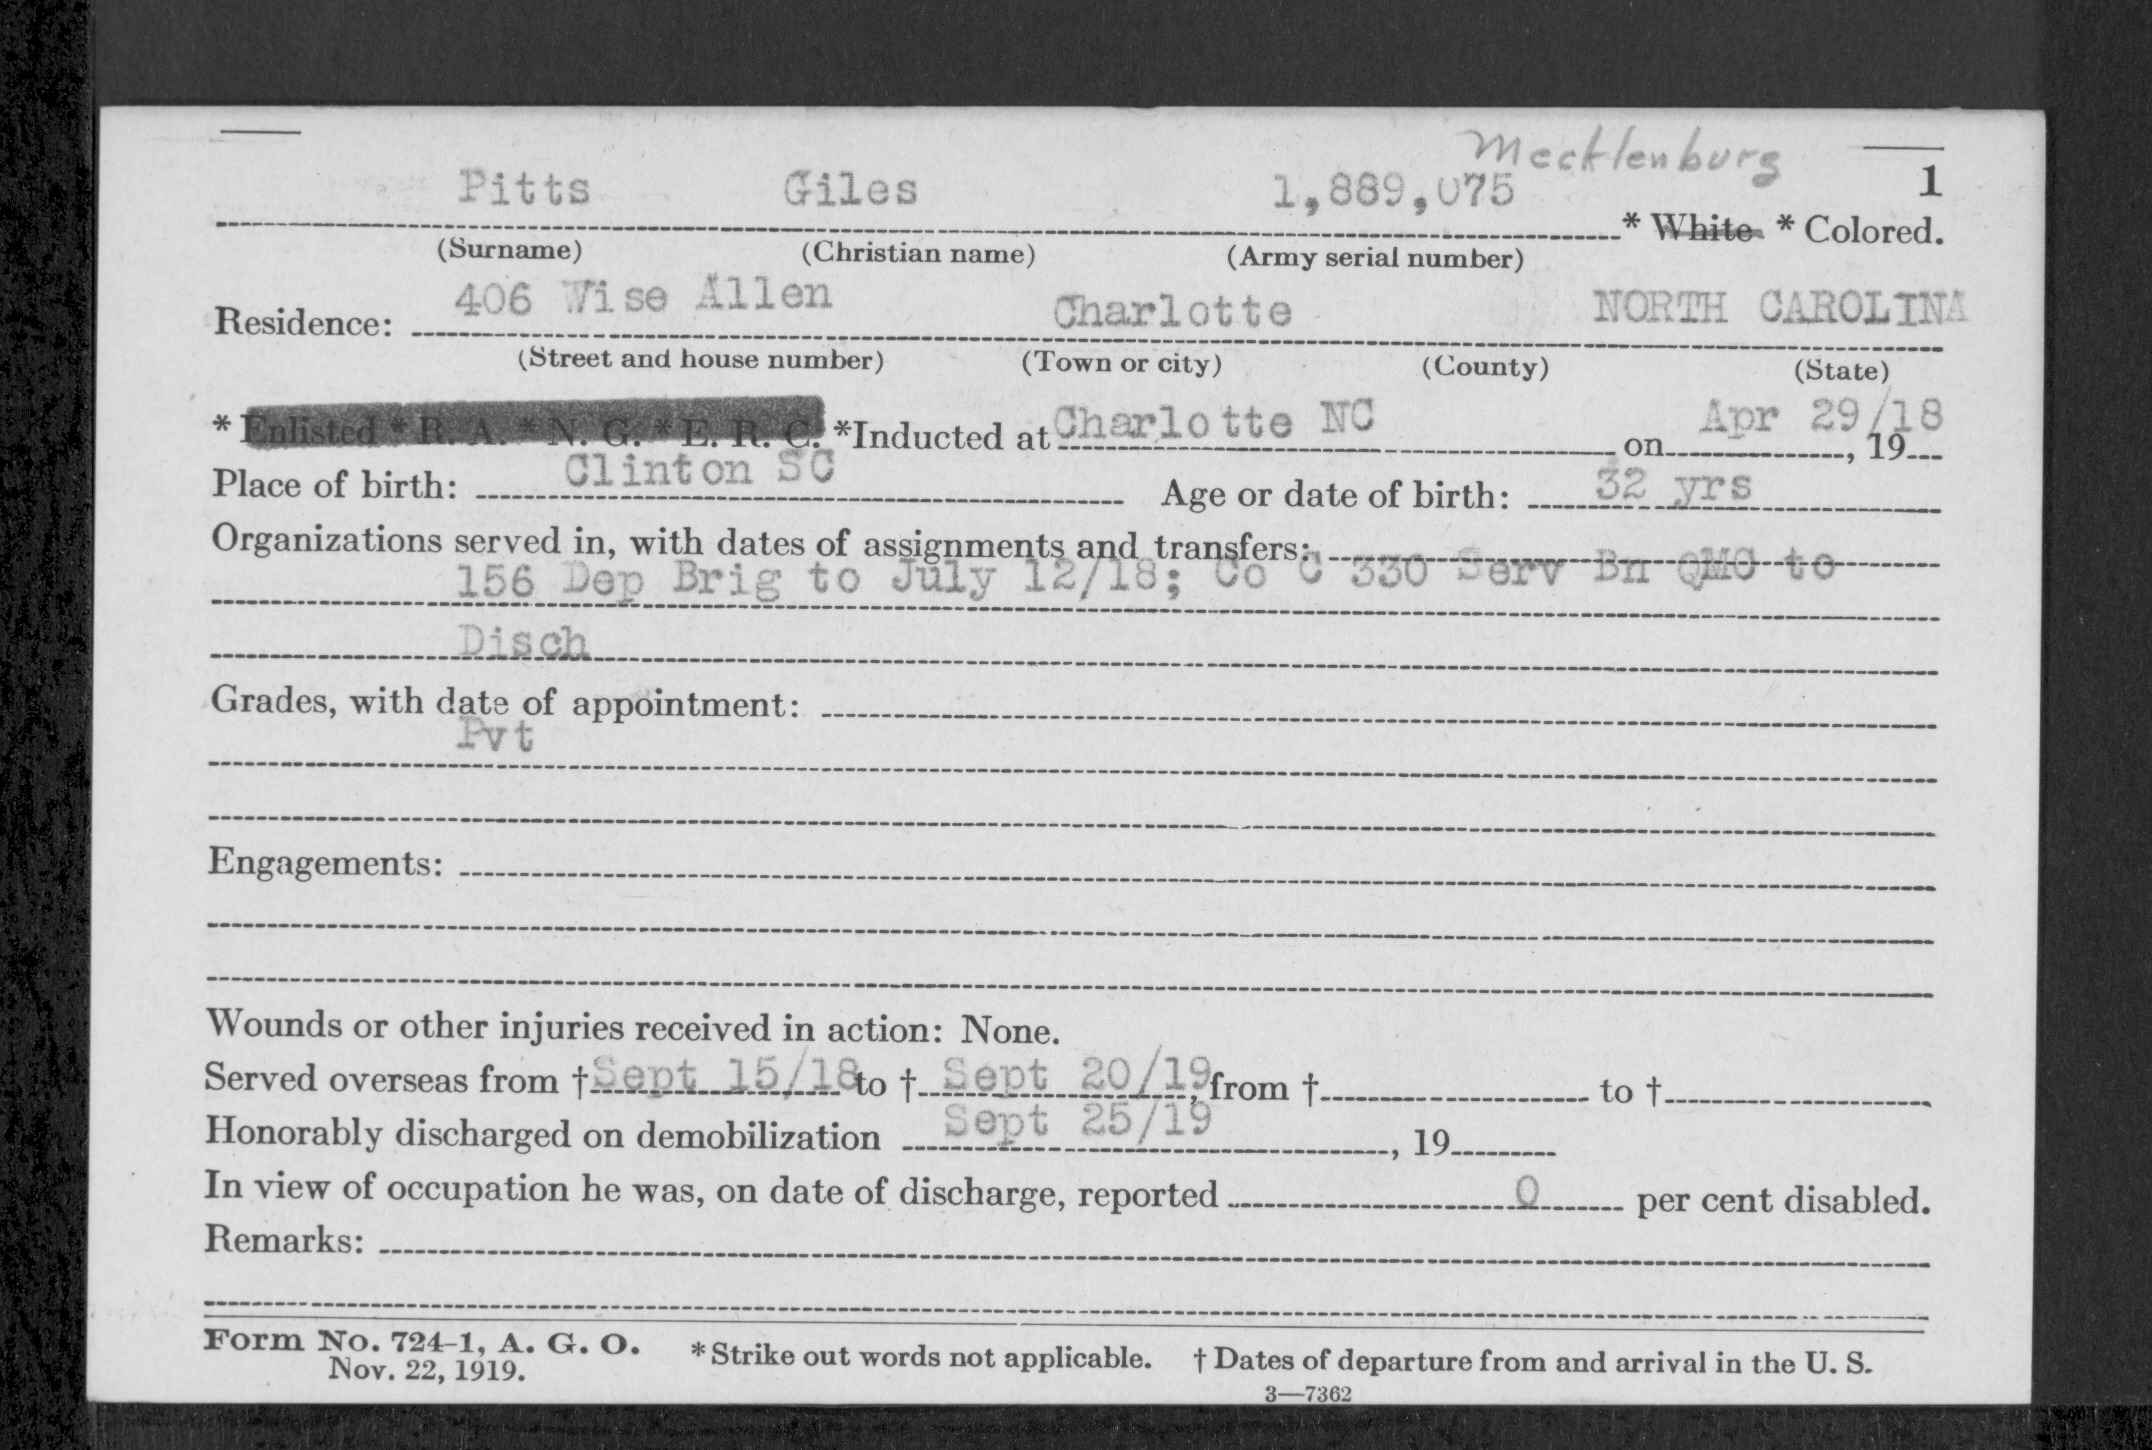 Mecklenburg
Pitts Giles 1,889,075 1
* White * Colored.
(Surname) (Christian name) (Army serial number)
406 Wise Allen Charlotte NORTH CAROLINA
Residence:
(Street and house number) (Town or city) (County) (State)
* Enlisted * R. A. * N. G. * E. R. C. *Inducted at Charlotte NC on Apr 29/18, 19
Place of birth: Clinton SC Age or date of birth: 32 yrs
Organizations served in, with dates of assignments and transfers:
156 Dep Brig to July 12/18; Co C 330 Serv Bn QMC to
Disch
Grades, with date of appointment:
Pvt
Engagements:
Wounds or other injuries received in action: None.
Served overseas from † Sept 15/18 to † Sept 20/19, from † to †
Honorably discharged on demobilization Sept 25/19, 19
In view of occupation he was, on date of discharge, reported 0 per cent disabled.
Remarks:
Form No. 724-1, A. G. O. * Strike out words not applicable. † Dates of departure from and arrival in the U. S.
Nov. 22, 1919.
3—7362